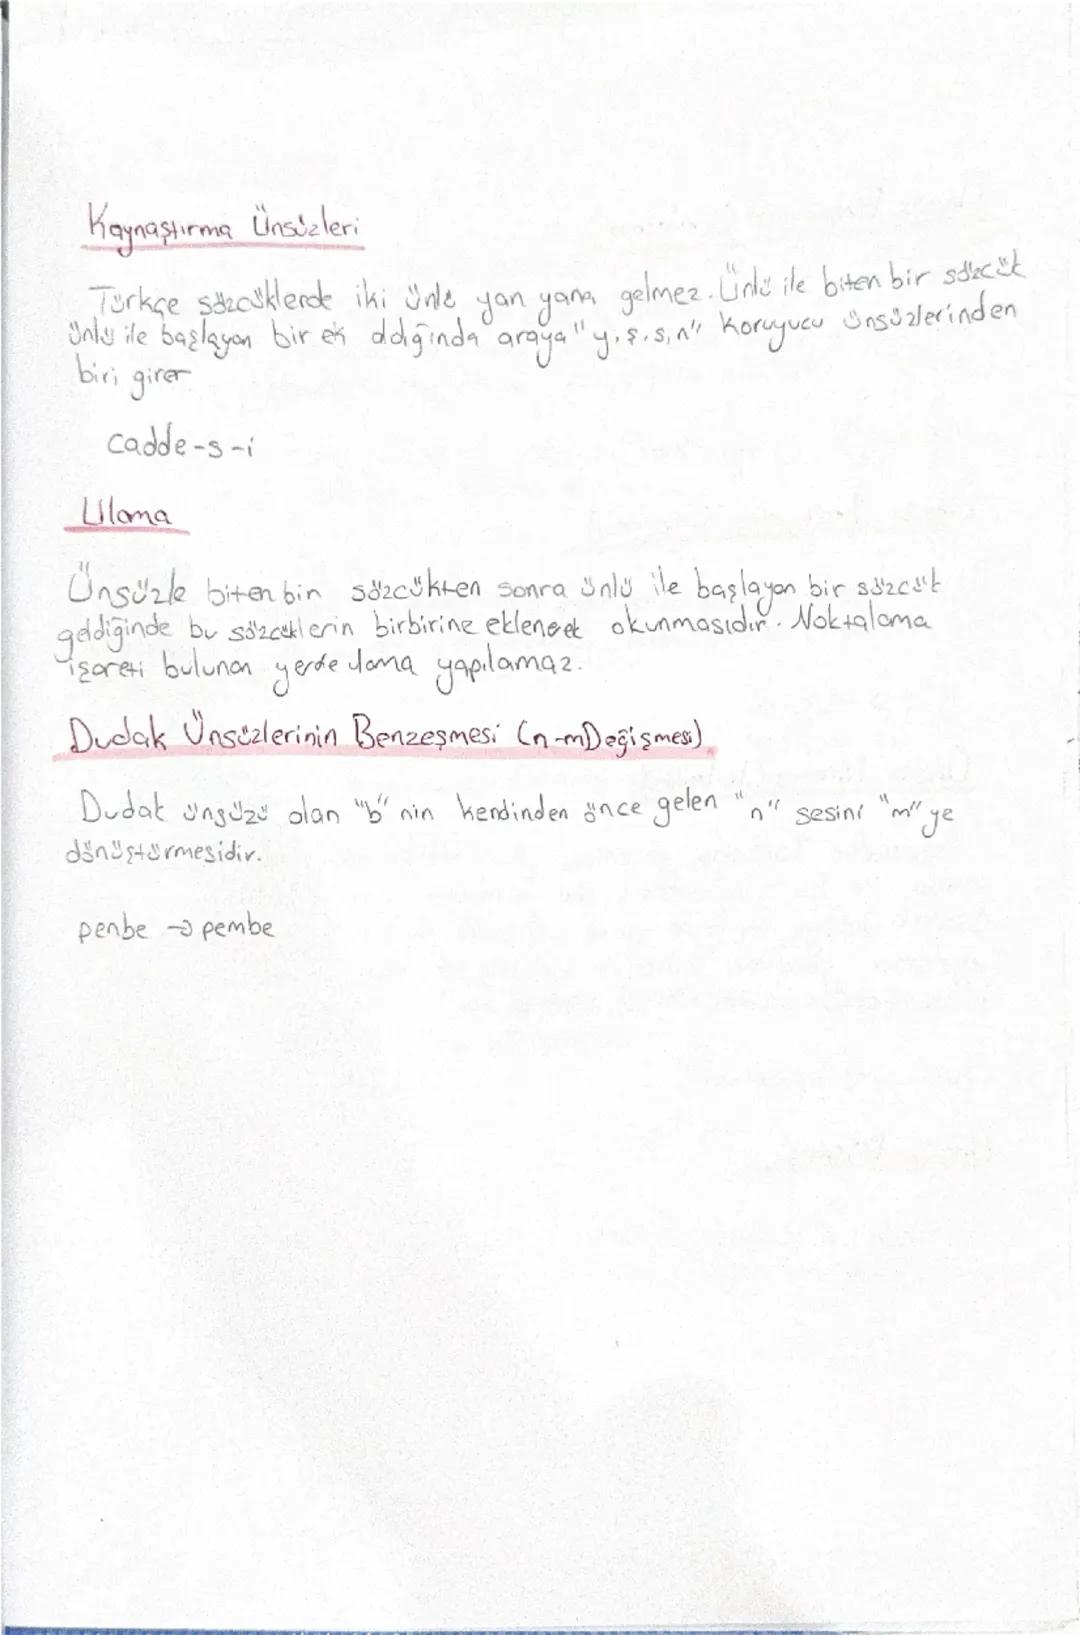 Kaynaştırma Ünsüzleri
Türkçe sözcüklerde iki ünlü yan yana gelmez. Ünlü ile biten bir sözcük
ünlü ile başlayan bir ek aldığında araya "y, ş, s, n" koruyucu ünsüzlerinden
biri girer
cadde-s-i
Ulama
Ünsüzle biten bin sözcükten sonra ünlü ile başlayan bir sözcük
geldiğinde bu sözcüklerin birbirine eklenerek okunmasıdır. Noktalama
işareti bulunan yerde ulama yapılamaz.
Dudak Ünsüzlerinin Benzeşmesi (n-m Değişmesi)
Dudak ünsüzü olan "b" nin kendinden önce gelen "n" sesini "m" ye
dönüştürmesidir.
penbe → pembe